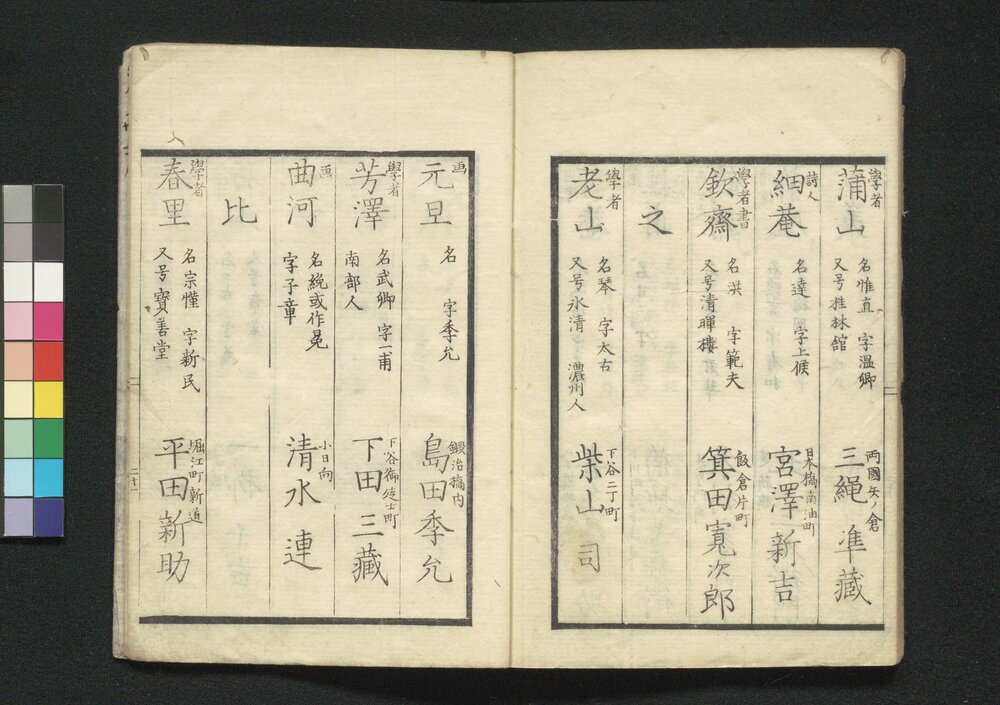 學者
蒲山
名惟直 字温卿
又号桂林館
両國矢ノ倉
三縄準藏
詩人
絪菴
名達 字上候
日本橋南油町
宮澤新吉
學者 書
欽齋
名洪 字範夫
又号清暉樓
飯倉片町
箕田寬次郎
之
學者
老山
名琴 字太古
又号氷清 濃州人
下谷二丁町
柴山司
画
元旦
名 字季允
鍛冶橋内
島田季允
學者
芳澤
名武卿 字一甫
南部人
下谷御徒士町
下田三藏
画
曲河
名絻或作冕
字子章
小日向
清水連
比
學者
春里
名宗懂 字新民
又号寳善堂
堀江町新道
平田新助
二十一